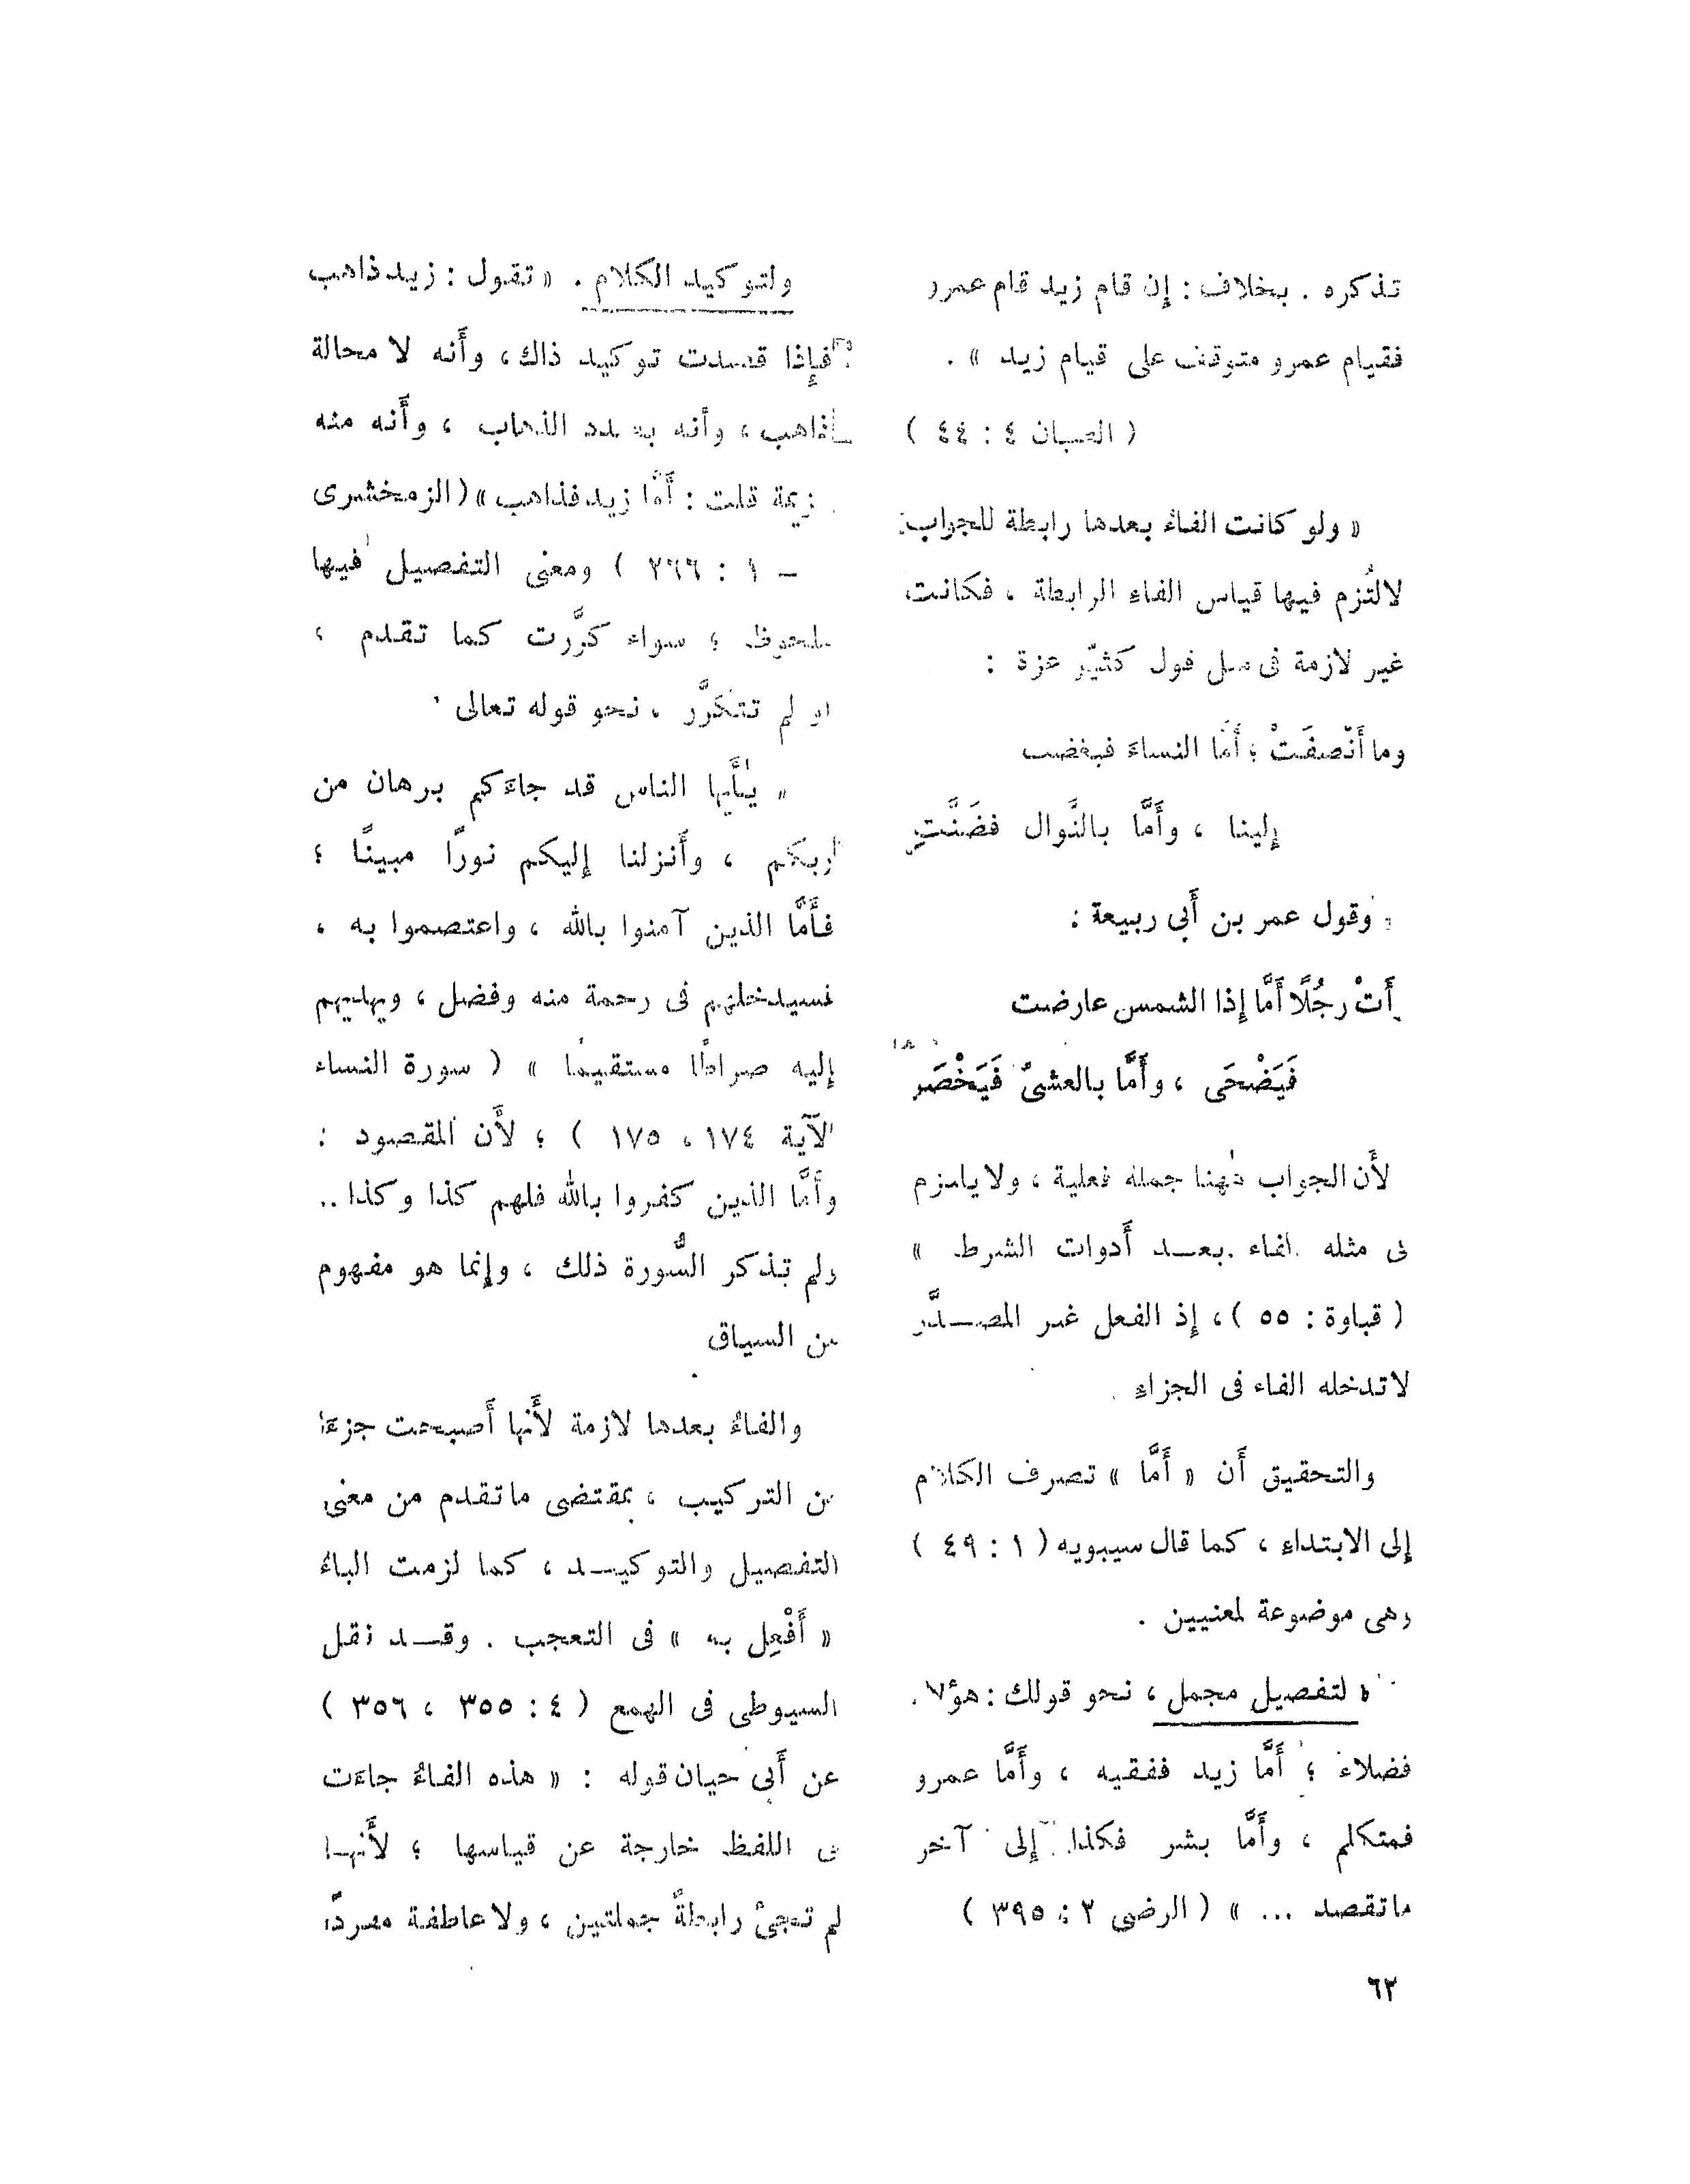 تذكره . بخلاف : إن قام زيد قام عمرو
فقيام عمرو متوقف على قيام زيد » .
( الصبان ٤ : ٤٤ )
« ولو كانت الفاءُ بعدها رابطة للجواب
لالتُزم فيها قياس الفاءِ الرابطة ، فكانت
غير لازمة فى مثل قول كثيّر عزة :
وما أَنْصفَتْ ؛ أَمَّا النساءَ فبغضت
إلينا ، وأَمَّا بالنَّوال فضَنَّتِ
وقول عمر بن أَبى ربيعة :
رأَتْ رجُلًا أَمَّا إِذا الشمس عارضت
فَيَضْحَى ، وأَمَّا بالعشىّ فَيَخْصَر
لأَن الجواب هٰهنا جملة فعلية ، ولا يلزم
فى مثله الفاء بعـــد أَدوات الشرط »
( قباوة : ٥٥ ) ، إذ الفعل غير المصـــدَّر
لا تدخله الفاء فى الجزاءِ .
والتحقيق أَن « أَمَّا » تصرف الكلام
إلى الابتداءِ ، كما قال سيبويه ( ١ : ٤٩ )
وهى موضوعة لمعنيين .
لتفصيل مجمل ، نحو قولك : هؤلا
فضلاءُ ؛ أَمَّا زيد ففقيه ، وأَمَّا عمرو
فمتكلم ، وأَمَّا بشر فكذا . إلى آخر
ما تقصد ... » ( الرضى ٢ : ٣٩٥ )
ولتوكيد الكلام . « تقول : زيد ذاهب
فإذا قصدت توكيد ذاك ، وأَنه لا محالة
ذاهب ، وأنه بصدد الذهاب ، وأَنه منه
زيمة قلت : أَمَّا زيد فذاهب » ( الزمخشرى
– ١ : ٢٦٦ ) ومعنى التفصيل فيها
ملحوظ ؛ سواء كرَّرت كما تقدم ،
او لم تتكرَّر ، نحو قوله تعالى
« يٰأَيها الناس قد جاءَكم برهان من
ربكم ، وأَنزلنا إليكم نورًا مبينًا ؛
فأَمَّا الذين آمنوا بالله ، واعتصموا به ،
فسيدخلهم فى رحمة منه وفضل ، ويهديهم
إليه صراطًا مستقيمًا » ( سورة النساء
الآية ١٧٤ ، ١٧٥ ) ؛ لأَن المقصود :
وأَمَّا الذين كفروا بالله فلهم كذا وكذا ..
ولم تذكر السُّورة ذلك ، وإنما هو مفهوم
من السياق
والفاءُ بعدها لازمة لأَنها أَصبحت جزءًا
من التركيب ، بمقتضى ما تقدم من معنى
التفصيل والتوكيـــد ، كما لزمت الباءُ
« أَفْعِل به » فى التعجب . وقـــد نقل
السيوطى فى الهمع ( ٤ : ٣٥٥ ، ٣٥٦ )
عن أَبى حيان قوله : « هذه الفاءُ جاءَت
فى اللفظ خارجة عن قياسها ؛ لأَنهـا
لم تجئْ رابطةً جملتين ، ولا عاطفة مفردًا
٦٢